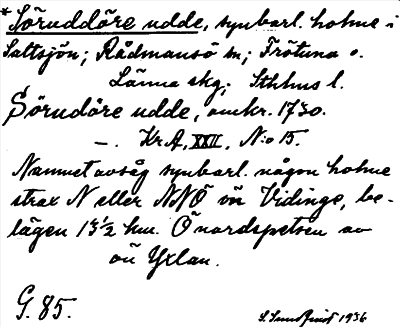 *Söruddöre udde, synbarl. holme i
Saltsjön; Rådmansö sn; Frötuna o.
Länna skg; Sthlms l.
Sörudöre udde, omkr. 1730.
—. Kr.A, XXII, N:o 15.
Namnet avsåg synbarl. någon holme
strax N eller NNÖ om Vidinge, be-
lägen 1 3½ km. Ö nordspetsen av
ön Yxlan.
G. 85.
1936